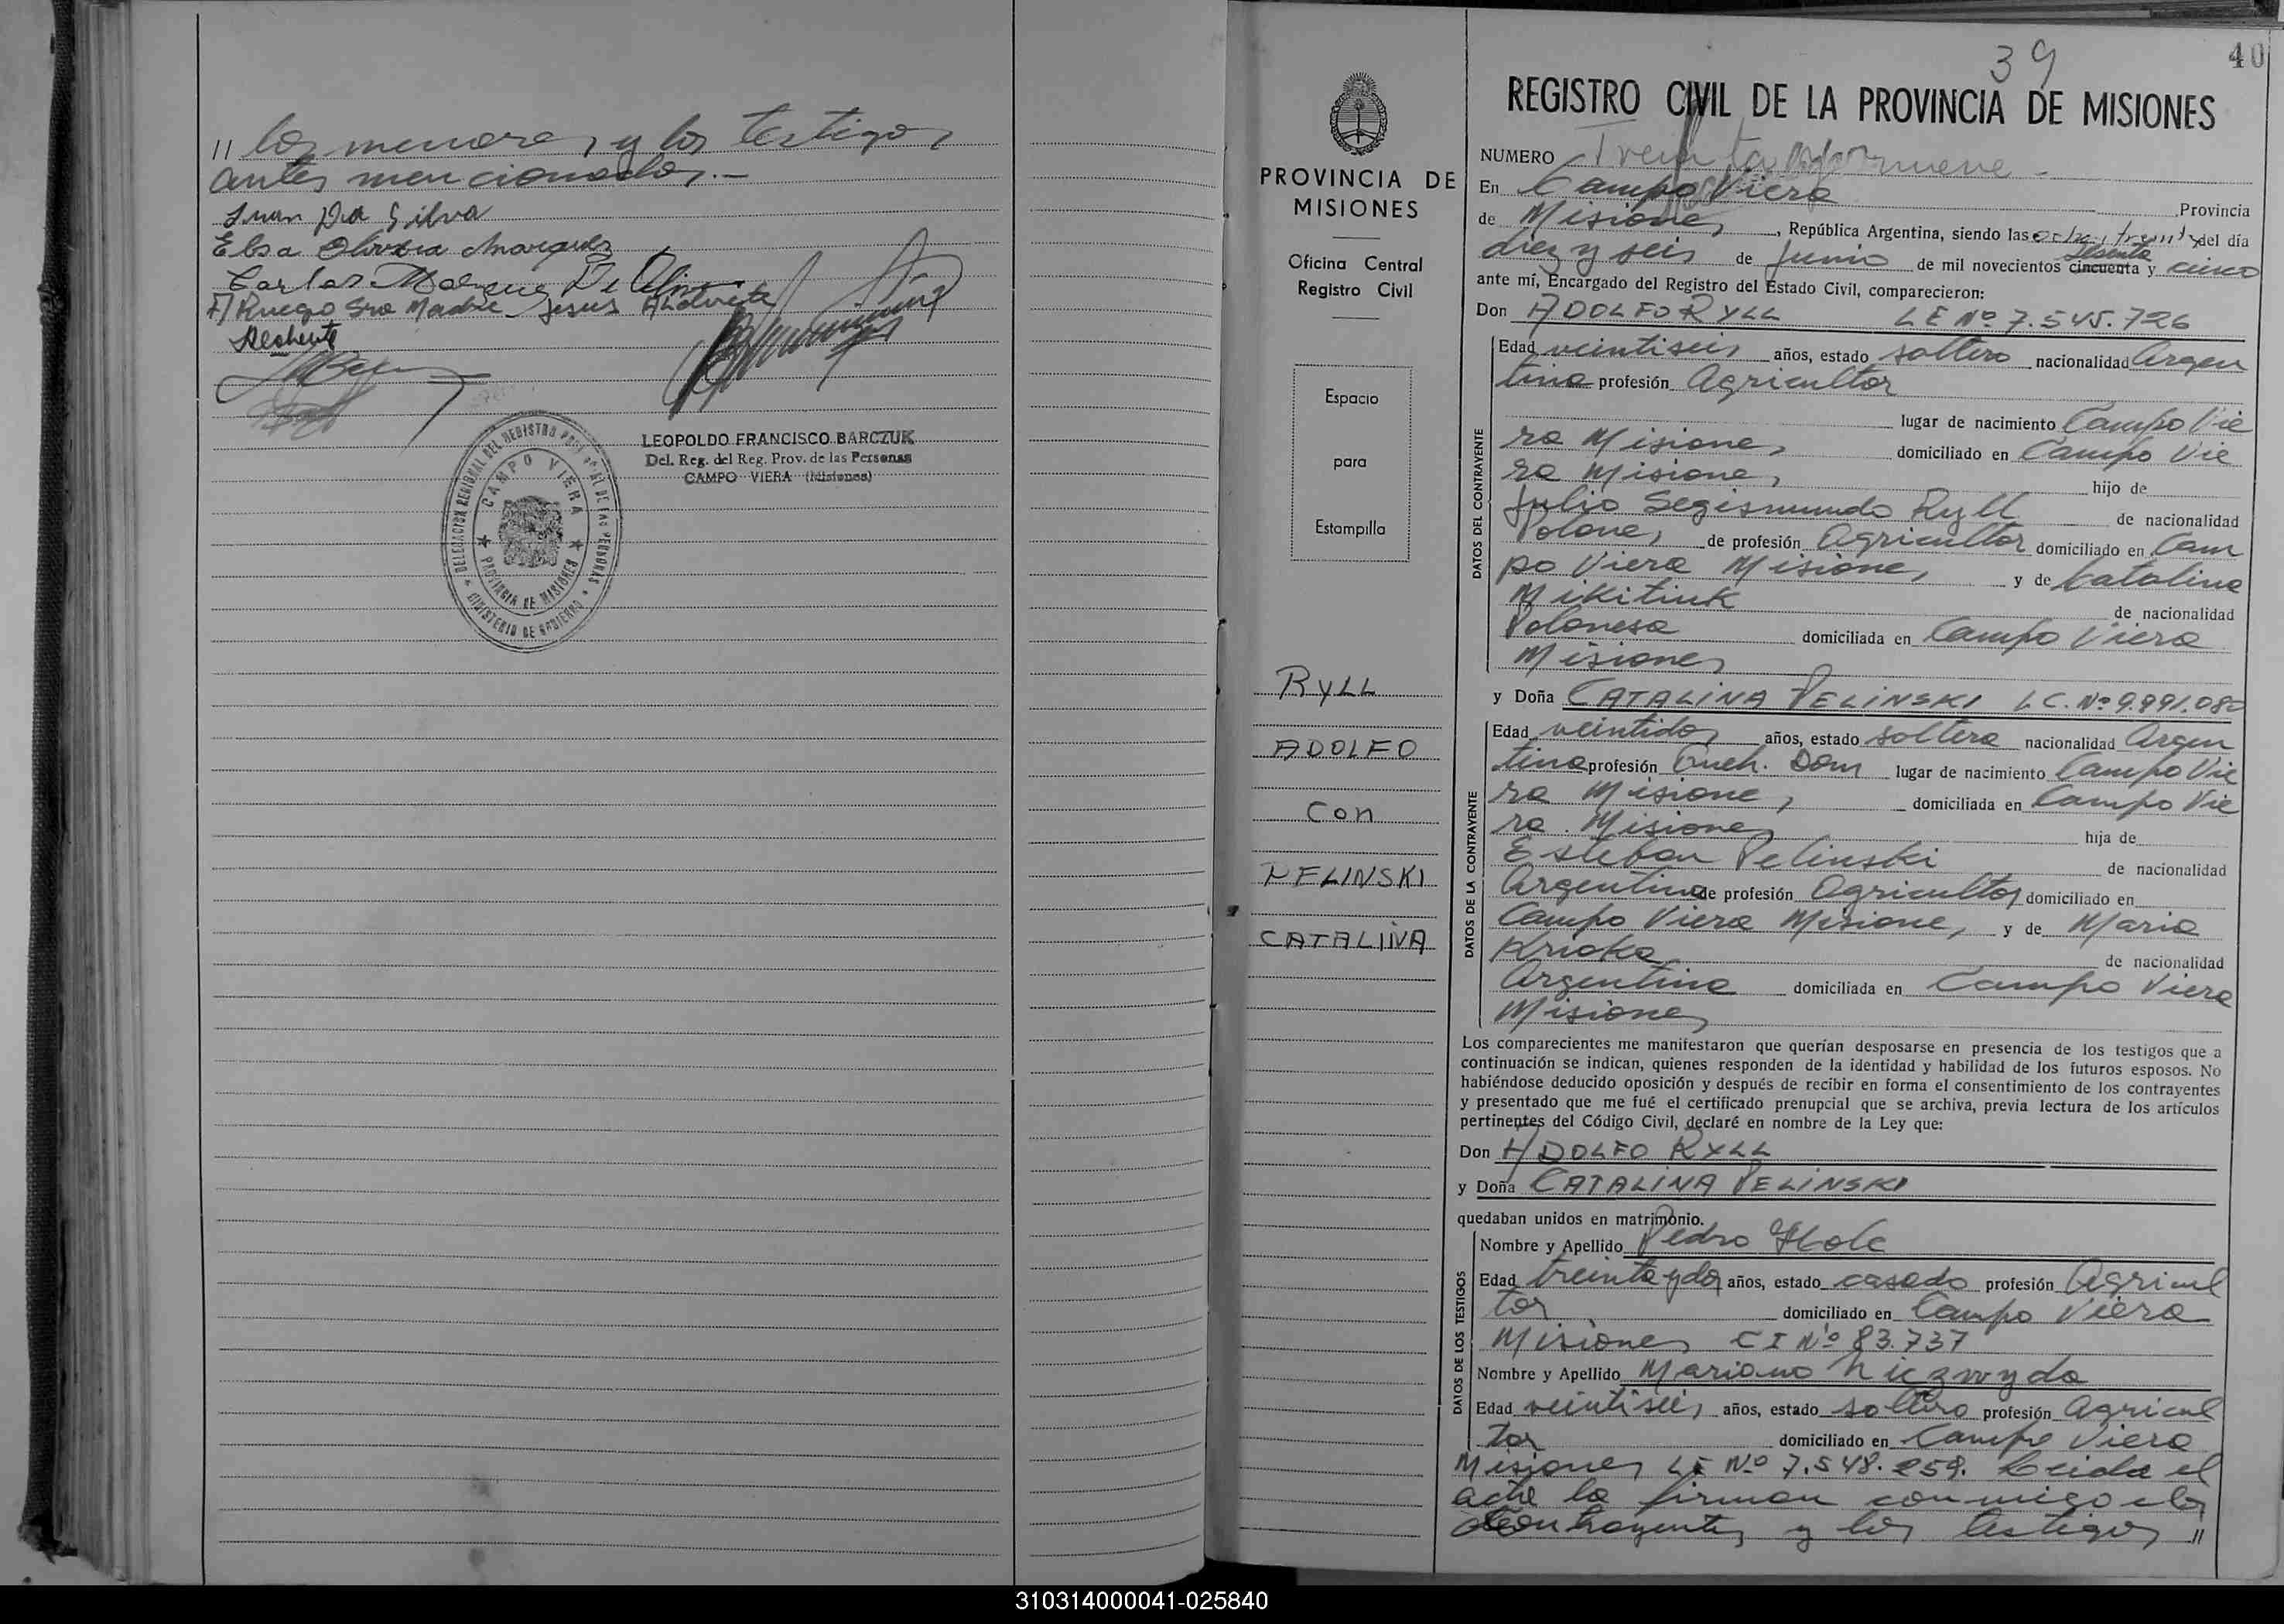 // los menores y los testigos
antes mencionados.-
Juan Da Silva
Elsa Olivera Marquez
Carlos
A/ Ruego Sra Madre Jesus
LEOPOLDO FRANCISCO BARCZUK
Del. Reg. del Reg. Prov. de las Personas
CAMPO VIERA (Misiones)
DELEGACION REGIONAL DEL REGISTRO PROVINCIAL DE LAS PERSONAS
CAMPO VIERA
PROVINCIA DE MISIONES
MINISTERIO DE GOBIERNO
PROVINCIA DE
MISIONES
Oficina Central
Registro Civil
Espacio
para
Estampilla
RYLL
ADOLFO
Con
PELINSKI
CATALINA
39
40
REGISTRO CIVIL DE LA PROVINCIA DE MISIONES
NUMERO Treinta y nueve -
En Campo Viera Provincia
de Misiones, República Argentina, siendo las ocho, treinta del día
diez y seis de Junio de mil novecientos cincuenta sesenta y cinco
ante mí, Encargado del Registro del Estado Civil, comparecieron:
Don ADOLFO RYLL LE Nº 7.545.726
DATOS DEL CONTRAYENTE
Edad veintiseis años, estado soltero nacionalidad Argen
tina profesión Agricultor
lugar de nacimiento Campo Vie
ra Misiones domiciliado en Campo Vie
ra Misiones, hijo de
Julio Segismundo Ryll de nacionalidad
Polones de profesión Agricultor domiciliado en Cam
po Viera Misiones, y de Catalina
Mikitiuk de nacionalidad
Polonesa domiciliada en Campo Viera
Misiones
y Doña CATALINA PELINSKI LC. Nº 9.991.080
DATOS DE LA CONTRAYENTE
Edad veintidos años, estado soltera nacionalidad Argen
tina profesión Queh. Dom lugar de nacimiento Campo Vie
ra Misiones, domiciliada en Campo Vie
ra. Misiones hija de
Esteban Pelinski de nacionalidad
Argentino de profesión Agricultor domiciliado en
Campo Viera Misiones, y de Maria
de nacionalidad
Argentina domiciliada en Campo Viera
Misiones
Los comparecientes me manifestaron que querían desposarse en presencia de los testigos que a
continuación se indican, quienes responden de la identidad y habilidad de los futuros esposos. No
habiéndose deducido oposición y después de recibir en forma el consentimiento de los contrayentes
y presentado que me fué el certificado prenupcial que se archiva, previa lectura de los artículos
pertinentes del Código Civil, declaré en nombre de la Ley que:
Don ADOLFO RYLL
y Doña CATALINA PELINSKI
quedaban unidos en matrimonio.
DATOS DE LOS TESTIGOS
Nombre y Apellido Pedro
Edad treinta y dos años, estado casado profesión Agricul
tor domiciliado en Campo Viera
Misiones CI Nº 83.737
Nombre y Apellido Mariano
Edad veintiseis, años, estado soltero profesión Agricul
tor domiciliado en Campo Viera
Misiones LE Nº 7.548.259. Leida el
acta la firman conmigo los
contrayentes y los testigos //
310314000041-025840